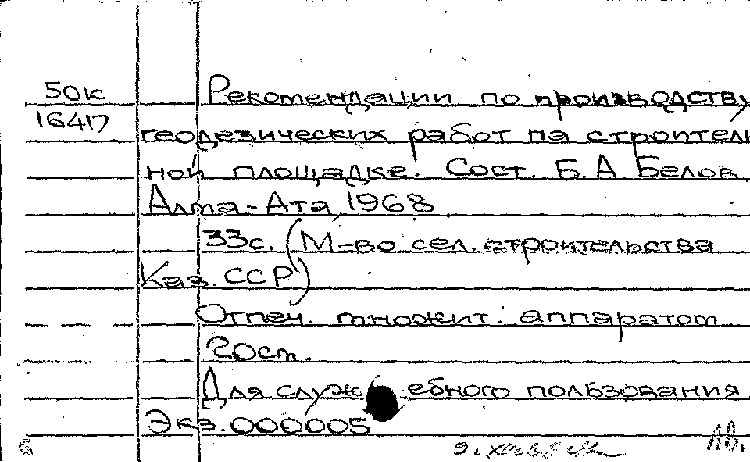 50к
16417
Рекомендации по производству
геодезических работ на строитель
ной площадке. Сост. Б. А Белов
Алма-Ата, 1968
33с. (М-во сел. строительства
Каз. ССР)
Отпеч. множит. аппаратом
20ст.
Для служебного пользования
Экз. 000005